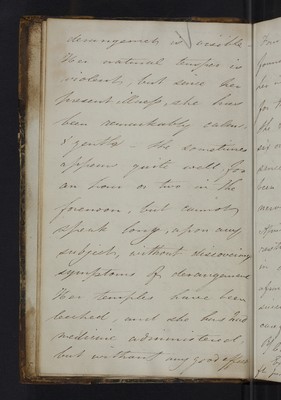 derangement is visible –
Her natural temper is
violent, but since her
present illness, she has
been remarkably calm,
& gentle – She sometimes
appears quite well, for
an hour or two in the
forenoon, but cannot
speak long, upon any
subject, without discovering
symptoms of derangement
Her temples have been
leeched, and she has had
medicine administered
but without any good effect